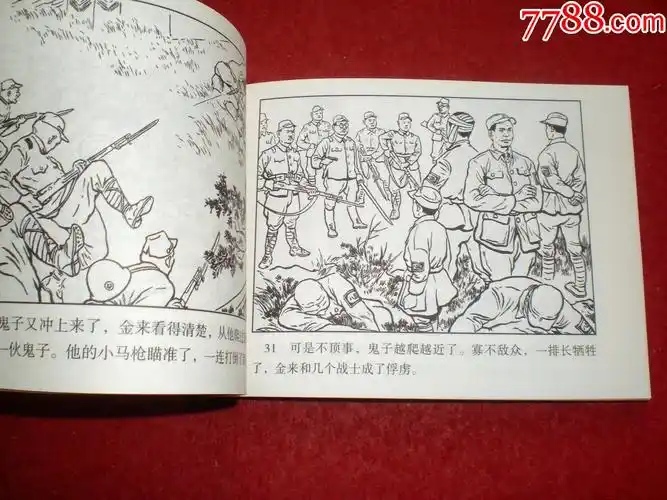 7788.com
鬼子又冲上来了，金来看得清楚，从他
一伙鬼子。他的小马枪瞄准了，一连打倒了
31 可是不顶事，鬼子越爬越近了。寡不敌众，一排长牺牲
了，金来和几个战士成了俘虏。